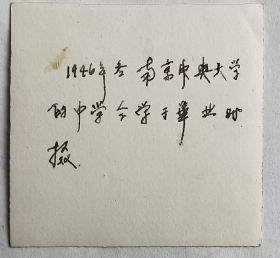 1946年冬 南京中央大学
的中学 同学于毕业时
摄